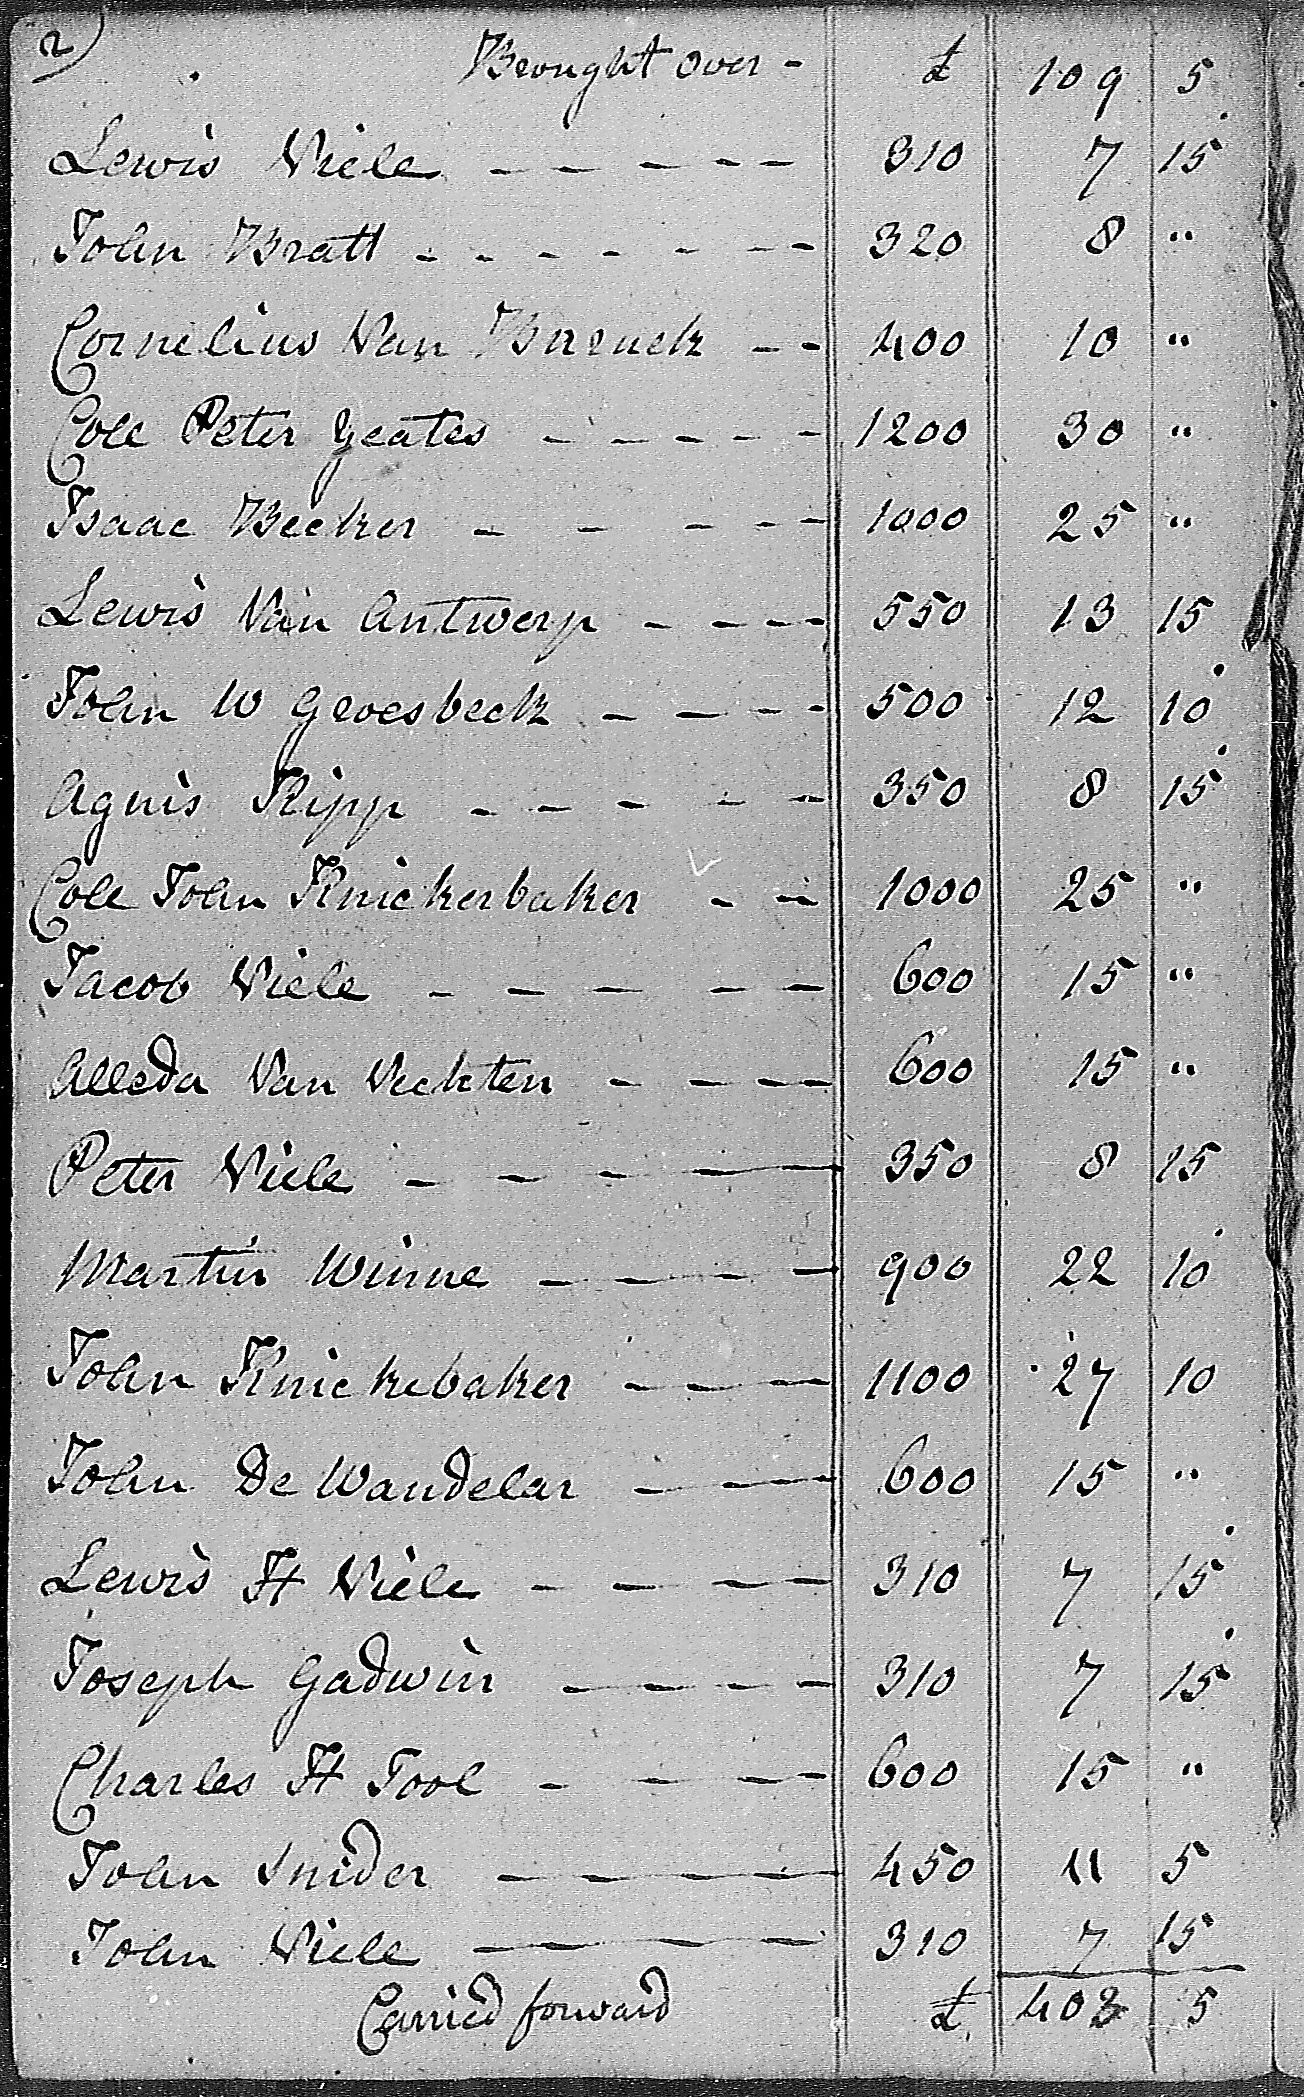 2)
Brought over - £ 109 5
Lewis Viele - - - - - 310 7 15
John Bratt - - - - - - - 320 8 "
Cornelius Van Buruck - - 400 10 "
Coll Peter Yeates - - - - - 1200 30 "
Isaac Becker - - - - - 1000 25 "
Lewis Van Antwerp - - - - 550 13 15
John W Groesbeck - - - - 500 12 10
Agnis Kipp - - - - - 350 8 15
Coll John Knickerbaker - - 1000 25 "
Jacob Viele - - - - - 600 15 "
Alleda Van Vechten - - - - 600 15 "
Peter Viele - - - - - 350 8 15
Martin Winne - - - - 900 22 10
John Knickebaker - - - - 1100 27 10
John De Wandelar - - - 600 15 "
Lewis H Viele - - - - 310 7 15
Joseph Gadwin - - - - - 310 7 15
Charles H Tool - - - - 600 15 "
John Snider - - - - - 450 11 5
John Viele - - - - 310 7 15
Carried forward £ 403 5